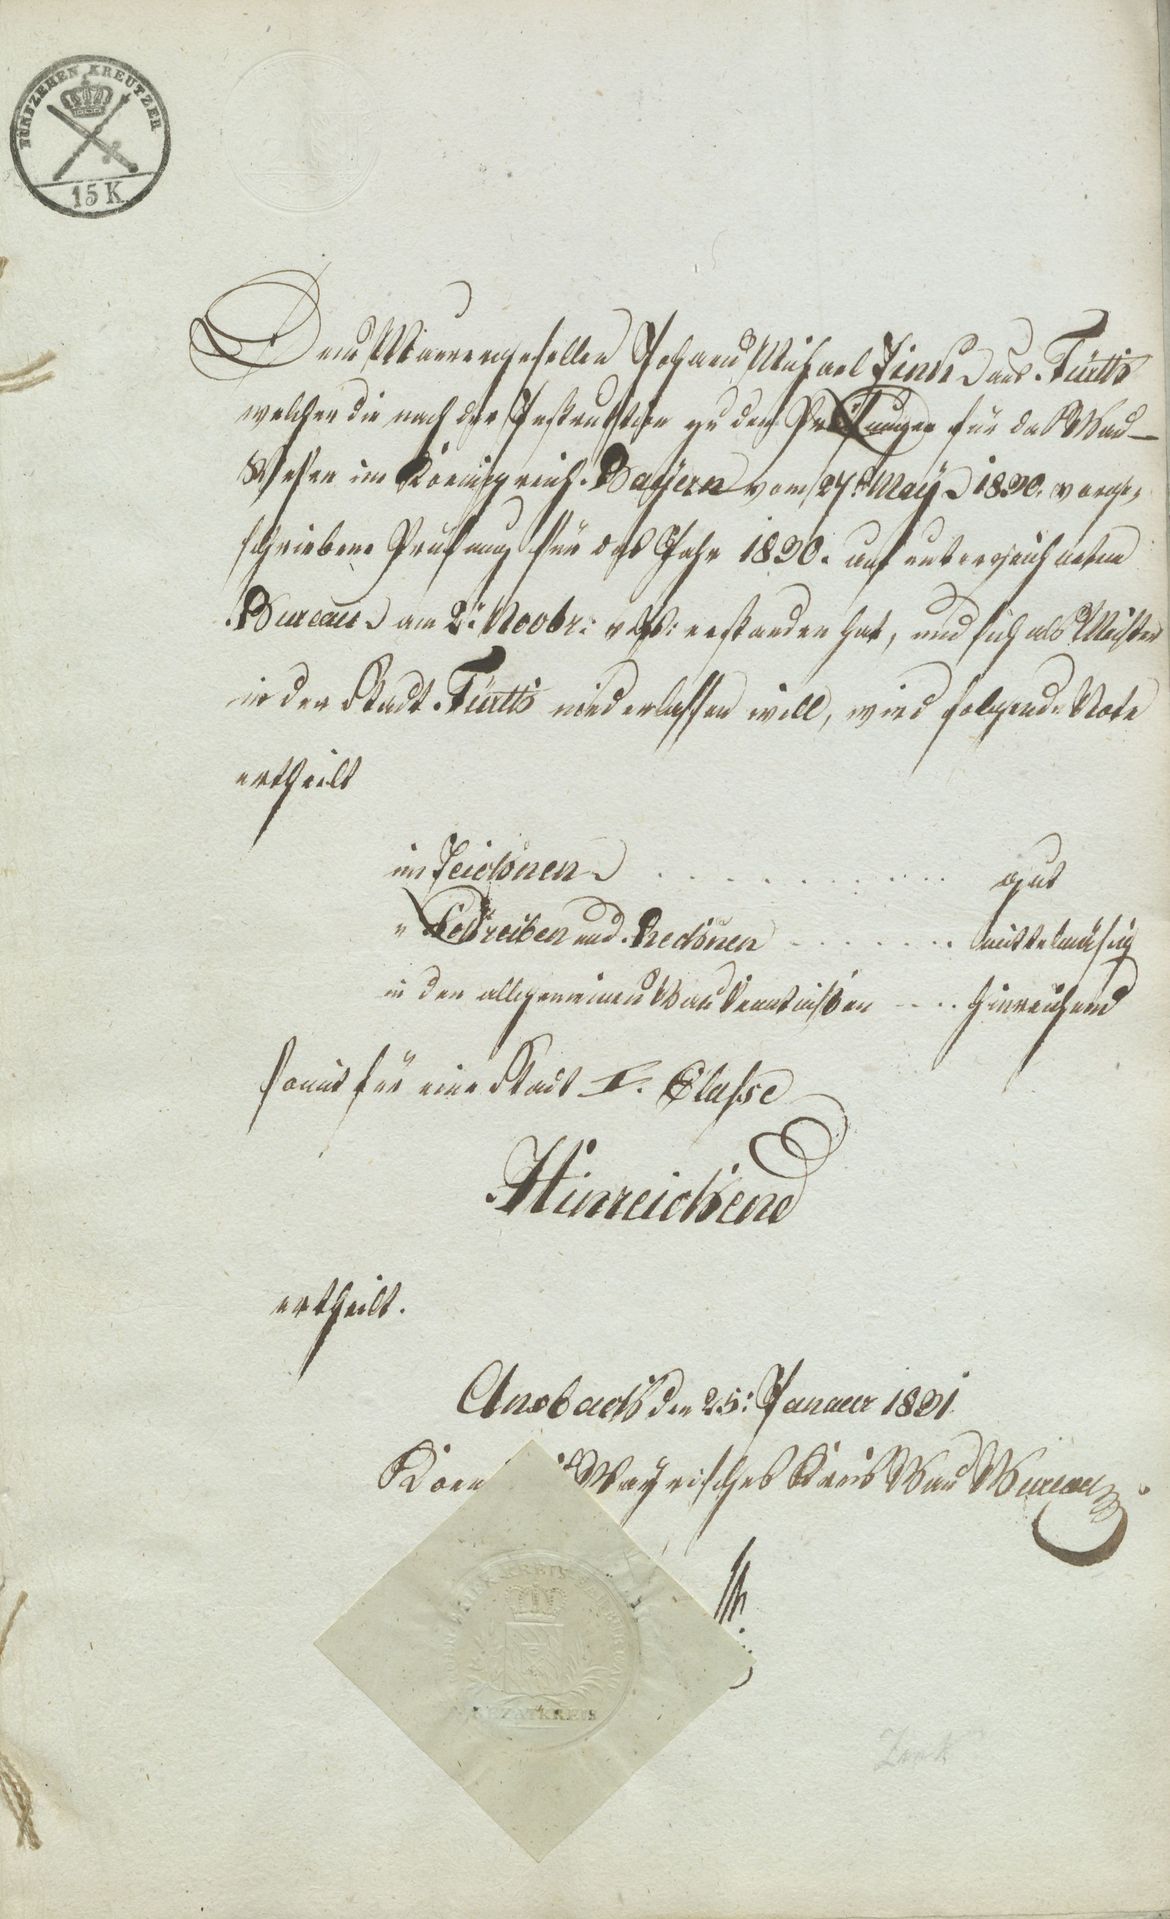 FÜNFZEHEN KREUTZER
15 K.
Dem Maurergesellen Johann Michael Zink aus Fürth
welcher die nach der Instruktion zu den Prüfungen für das Bau-
Wesen im Koenigreich Bayern vom 27t May 1830. vorge-
schriebene Prüfung für das Jahr 1830. am unterzeichneten
Bureau am 2. Novbr: erstanden hat, und sich als Meister
in der Stadt Fürth niederlassen will, wird folgende Note
ertheilt
im Zeichnen . . . . . . . . . . . gut
" Schreiben und Rechnen . . . . . . . mittelmäsig
in den allgemeinen Baukenntnißen . . . . hinreichend
somit für eine Stadt I. Classe
Hinreichend
ertheilt.
Ansbach den 25: Januar 1831
Koen Bayrisches Kreis Bau Bureau
REZATKREIS
Zink